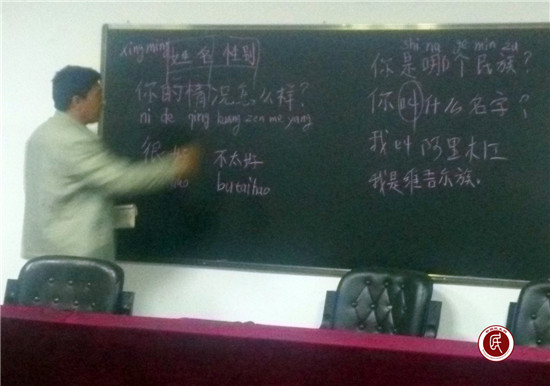 xing ming 姓名 性别
你的情况怎么样?
ni de qing kuang zen me yang
很 不太好
butaihao
shi na ge min zu
你是哪个民族?
你叫什么名字?
我叫阿里木江
我是维吾尔族.